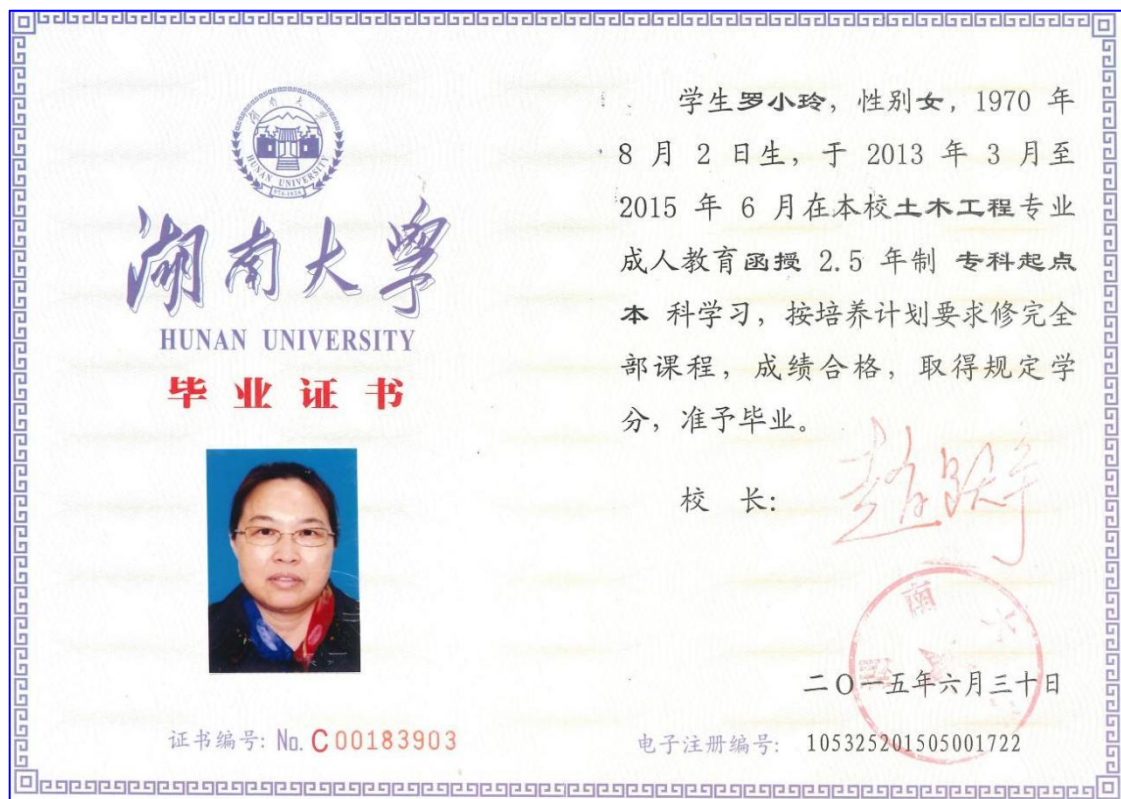 湖南大学
HUNAN UNIVERSITY
湖南大学
HUNAN UNIVERSITY
毕业证书
证书编号: No. C 00183903
学生罗小玲，性别女，1970 年
8 月 2 日生，于 2013 年 3 月至
2015 年 6 月在本校土木工程专业
成人教育函授 2.5 年制 专科起点
本 科学习，按培养计划要求修完全
部课程，成绩合格，取得规定学
分，准予毕业。
校 长:
二〇一五年六月三十日
电子注册编号: 105325201505001722